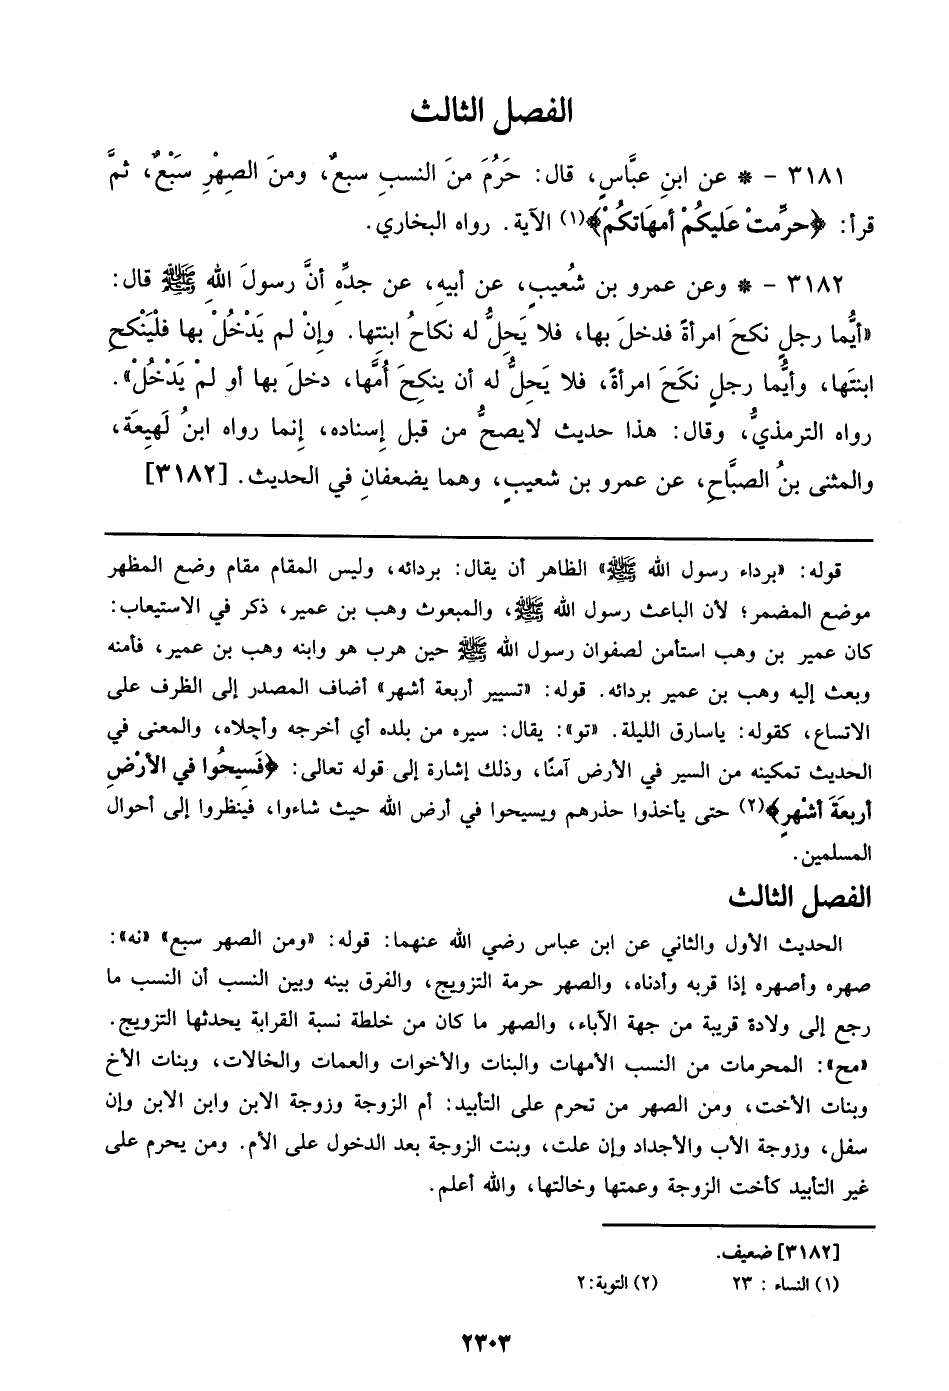 الفصل الثالث
٣١٨١ – * عن ابنِ عبَّاسٍ، قال: حَرُمَ منَ النسبِ سبعٌ، ومنَ الصِهْرِ سَبْعٌ، ثمَّ
قرأ: ﴿حرِّمتْ عَليكُمْ أمهَاتكُمْ﴾(١) الآية. رواه البخاري.
٣١٨٢ – * وعن عمرو بن شُعيبٍ، عن أبيهِ، عن جدِّهِ أنَّ رسولَ اللهِ ﷺ قال:
«أيُّما رجلٍ نكحَ امرأةً فدخلَ بها، فلا يَحِلُّ له نكاحُ ابنتِها. وإنْ لم يَدْخُلْ بها فلْيَنْكحِ
ابنتَها، وأيُّما رجلٍ نكَحَ امرأةً، فلا يَحِلُّ له أن ينكِحَ أُمَّها، دخلَ بها أو لمْ يَدْخُلْ».
رواه الترمذيُّ، وقال: هذا حديث لايصحُّ من قبل إسناده، إنما رواه ابنُ لَهيعَة،
والمثنى بنُ الصبَّاحِ، عن عمرو بن شعيبٍ، وهما يضعفانِ في الحديث. [٣١٨٢]
قوله: «برداء رسول الله ﷺ» الظاهر أن يقال: بردائه، وليس المقام مقام وضع المظهر
موضع المضمر؛ لأن الباعث رسول الله ﷺ، والمبعوث وهب بن عمير، ذكر في الاستيعاب:
كان عمير بن وهب استأمن لصفوان رسول الله ﷺ حين هرب هو وابنه وهب بن عمير، فأمنه
وبعث إليه وهب بن عمير بردائه. قوله: «تسيير أربعة أشهر» أضاف المصدر إلى الظرف على
الاتساع، كقوله: ياسارق الليلة. «تو»: يقال: سيره من بلده أي أخرجه وأجلاه، والمعنى في
الحديث تمكينه من السير في الأرض آمنًا، وذلك إشارة إلى قوله تعالى: ﴿فَسِيحُوا في الأرْضِ
أربعَةَ أشْهرٍ﴾(٢) حتى يأخذوا حذرهم ويسيحوا في أرض الله حيث شاءوا، فينظروا إلى أحوال
المسلمين.
الفصل الثالث
الحديث الأول والثاني عن ابن عباس رضي الله عنهما: قوله: «ومن الصهر سبع» «نه»:
صهره وأصهره إذا قربه وأدناه، والصهر حرمة التزويج، والفرق بينه وبين النسب أن النسب ما
رجع إلى ولادة قريبة من جهة الآباء، والصهر ما كان من خلطة نسبة القرابة يحدثها التزويج.
«مح»: المحرمات من النسب الأمهات والبنات والأخوات والعمات والخالات، وبنات الأخ
وبنات الأخت، ومن الصهر من تحرم على التأبيد: أم الزوجة وزوجة الابن وابن الابن وإن
سفل، وزوجة الأب والأجداد وإن علت، وبنت الزوجة بعد الدخول على الأم. ومن يحرم على
غير التأبيد كأخت الزوجة وعمتها وخالتها، والله أعلم.
[٣١٨٢] ضعيف.
(١) النساء : ٢٣ (٢) التوبة: ٢
٢٣٠٣